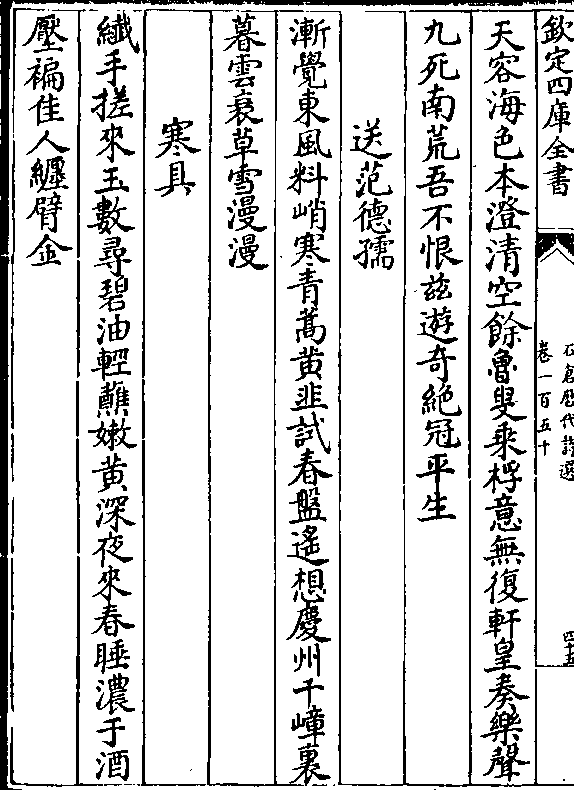 欽定四庫全書
石倉歷代詩選
卷一百五十
四十五
天容海色本澄清空餘魯叟乘桴意無復軒皇奏樂聲
九死南荒吾不恨兹遊奇絶冠平生
送范德孺
漸覺東風料峭寒青蒿黄韭試春盤遥想慶州千嶂裏
暮雲衰草雪漫漫
寒具
纎手搓來玉數尋碧油輕蘸嫩黄深夜來春睡濃于酒
壓褊佳人纒臂金